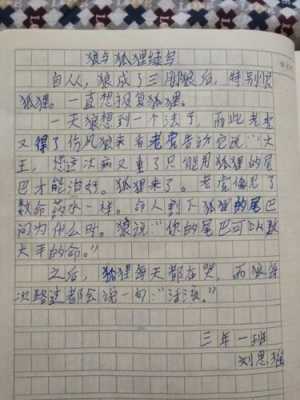 狼与狐狸续写
自从，狼成了三用狼后，特别恨
狐狸。一直想报复狐狸。
一天狼想到一个法子，而此老虎
又得了伤风狼来看老虎告诉它说：“大
王，您这次病又重了只能用狐狸的尾
巴才能治好。狐狸来了。老虎像见了
救命药水一样。令人割下狐狸的尾巴
问为什么时。狼说“你的尾巴可以救
大王的命。”
之后，狐狸每天都在哭，而狼每
次路过都会说一句：“活该。”
三年一班
刘思